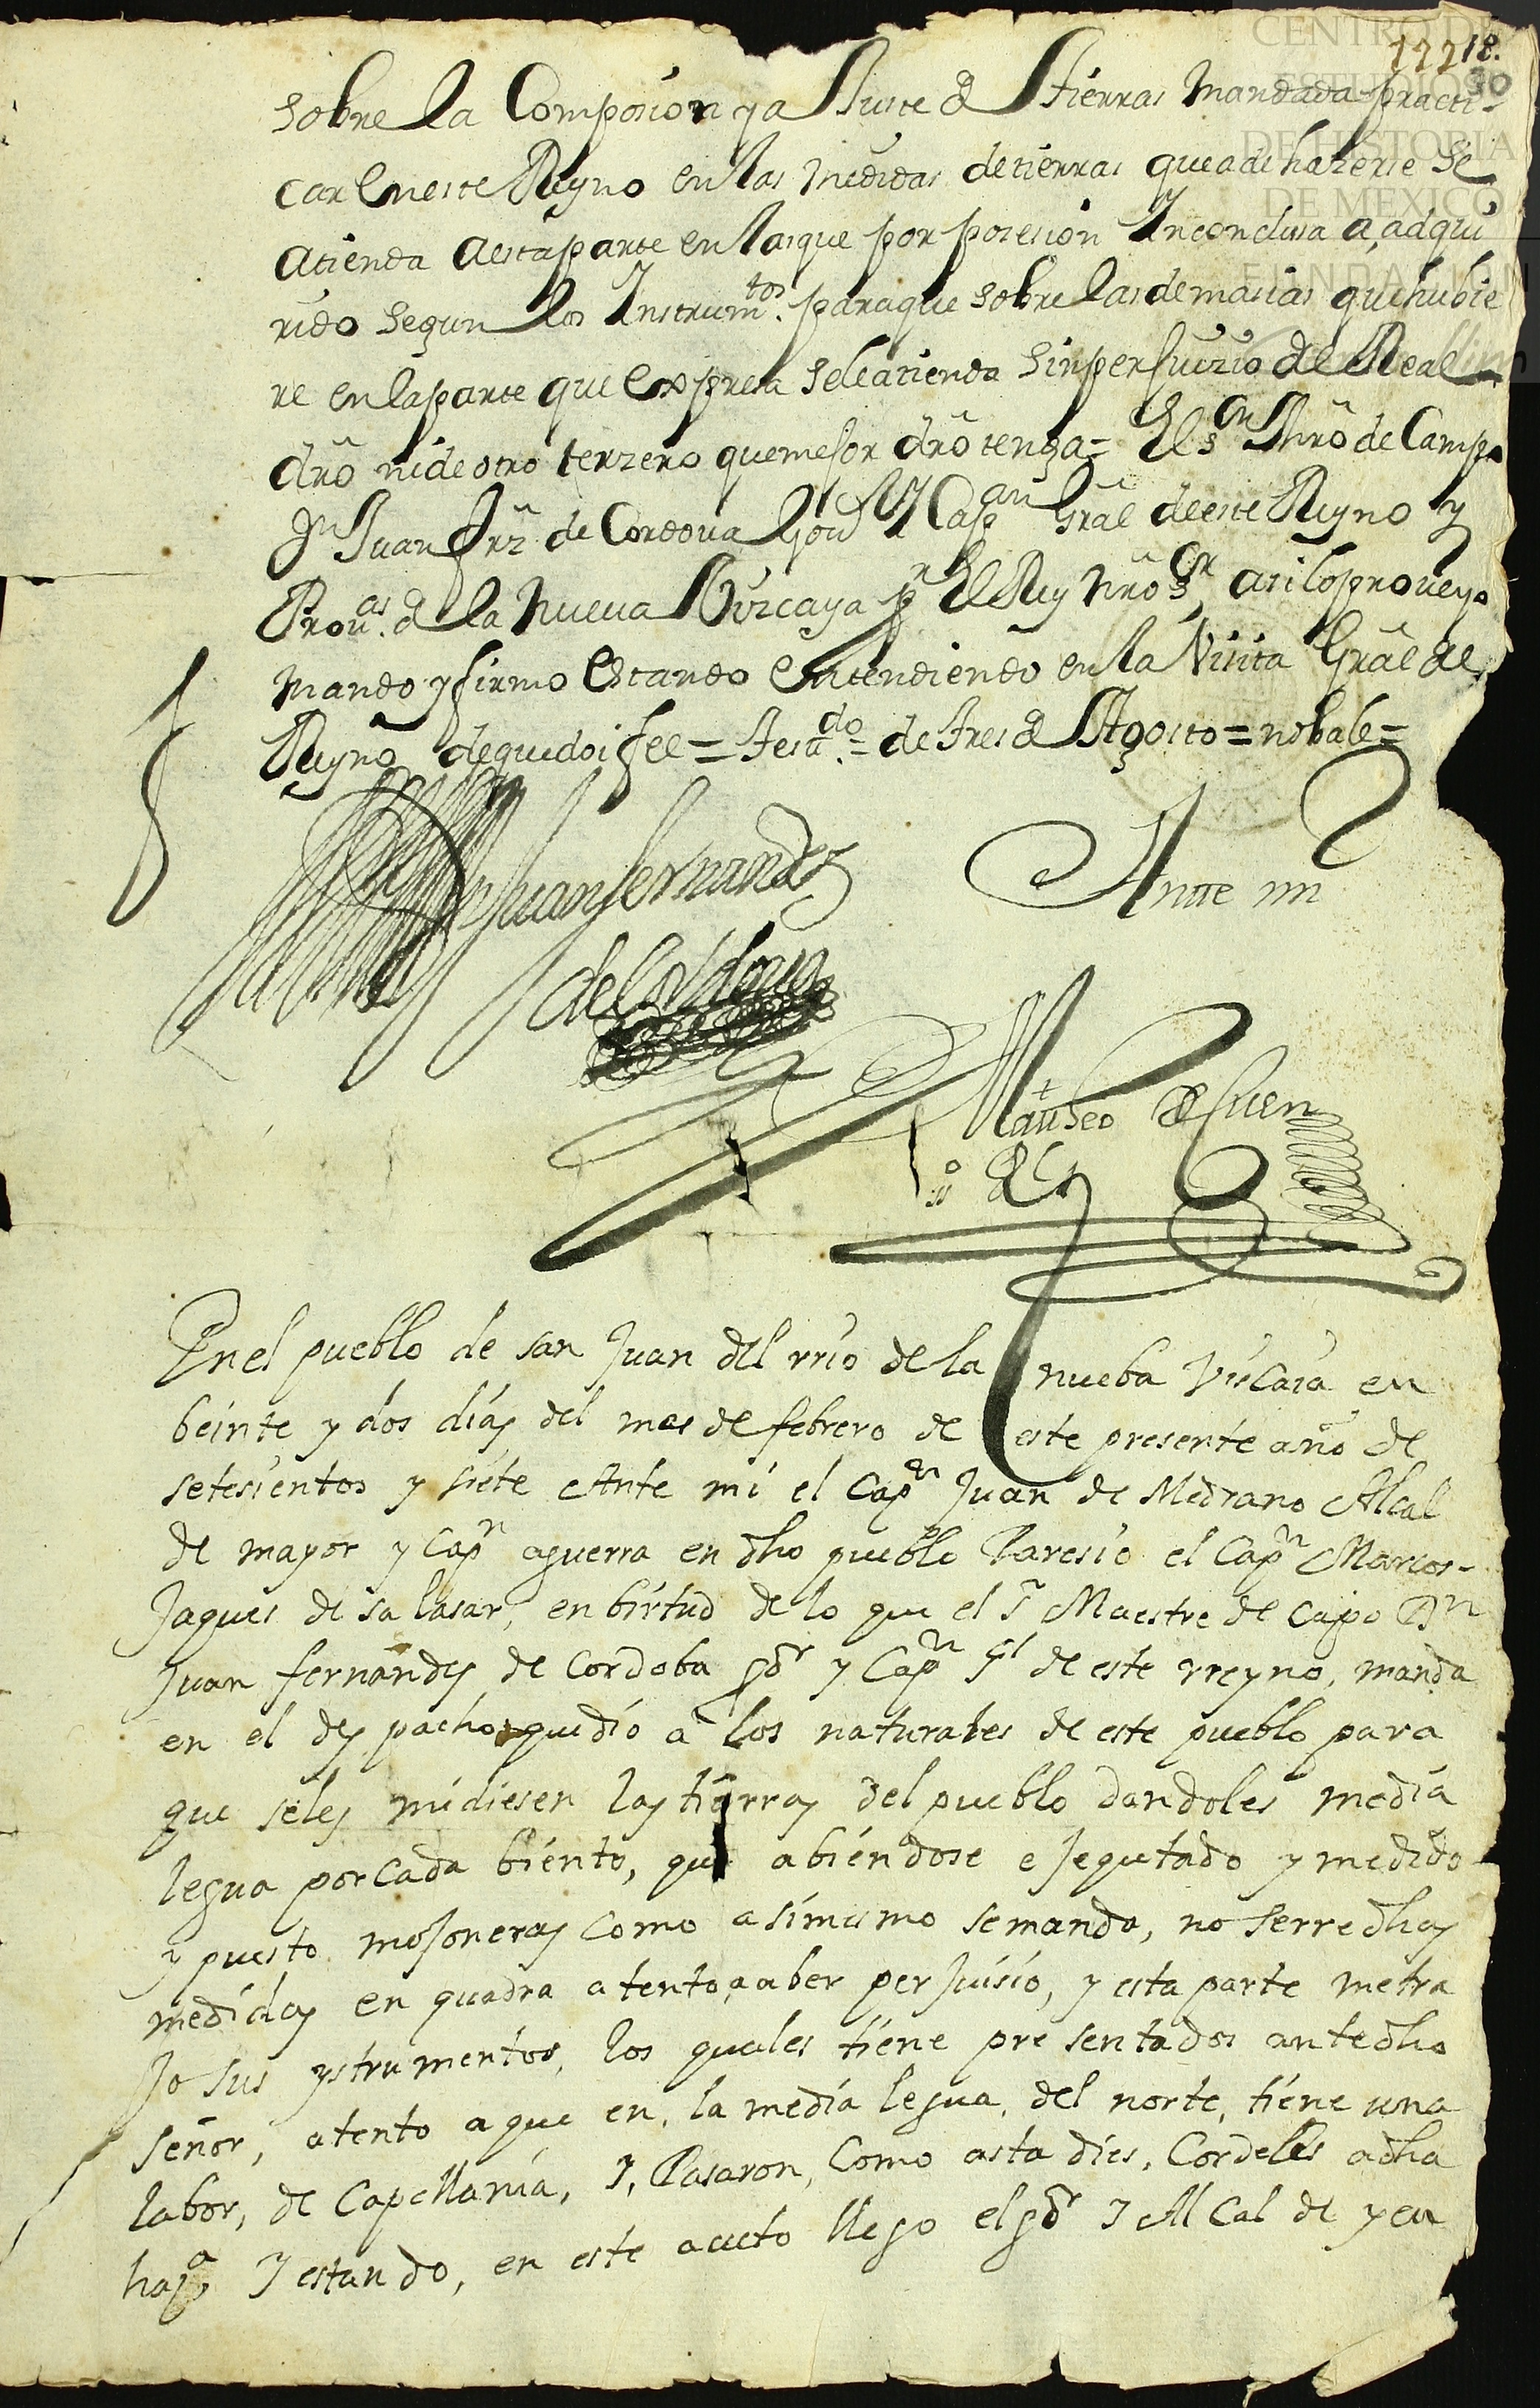 CENTRO DE
ESTUDIOS
DE HISTORIA
DE MEXICO
FUNDACION
18.
30
sobre la Composiⁿ y aJuste de tierras mandada practi-
car en este Reyno en las medidas de tierras que a de hazerse se
atienda a esta parte en las que por posesion Inconclusa a, adqui
rido segun los Instrum.tos paraque sobre las demasias que hubie
re en la parte que expresa se le atienda sin perJuizio del Real
dr̃o ni de otro terzero que meJor dr̃o tenga = El s.or Mr̃o de Campo
Dn Juan Frz̃ de Cordova Gou.r Y Cap.an Gral de este Reyno y
Prou.as de la nueva Vizcaya pr El Rey nr̃o S.r asi lo proveyo
mando y firmo estando entendiendo en la Visita Gral del
Reyno de que doi fee = testa.do = de tres de Agosto = no bale =
Juan fernandez
de Cordoua
Ante mi
Matheo de
En el pueblo de san Juan del rrio de la nueba Viscaia en
beinte y dos dias del mes de febrero de este presente año de
setesientos y siete Ante mi el Capn Juan de Medrano Alcal
de mayor y Capn aguerra en dho pueblo Paresio el Capn Marcos
Jaques de salasar, en birtud de lo que el Sr Maestre de Capo Dn
Juan fernandes de Cordoba gdr y Capn Gl de este rreyno, manda
en el des pacho que dio a los naturales de este pueblo para
que seles midiesen las tierras del pueblo dandoles media
legua por cada biento, que abiendose e Jequtado y medido
y puesto moJoneras como asimismo se manda, no serre dhas
medidas en quadra atento, a aber perJuisio, y esta parte metra
Jo sus ystrumentos, los quales tiene pre sentados ante dho
señor, atento a que en, la media legua, del norte, tiene una
labor, de Capellania, I, Pasaron, Como asta dies, Cordeles a dha
hasa, I estando, en este aucto llego el gdr I Al Cal de y en